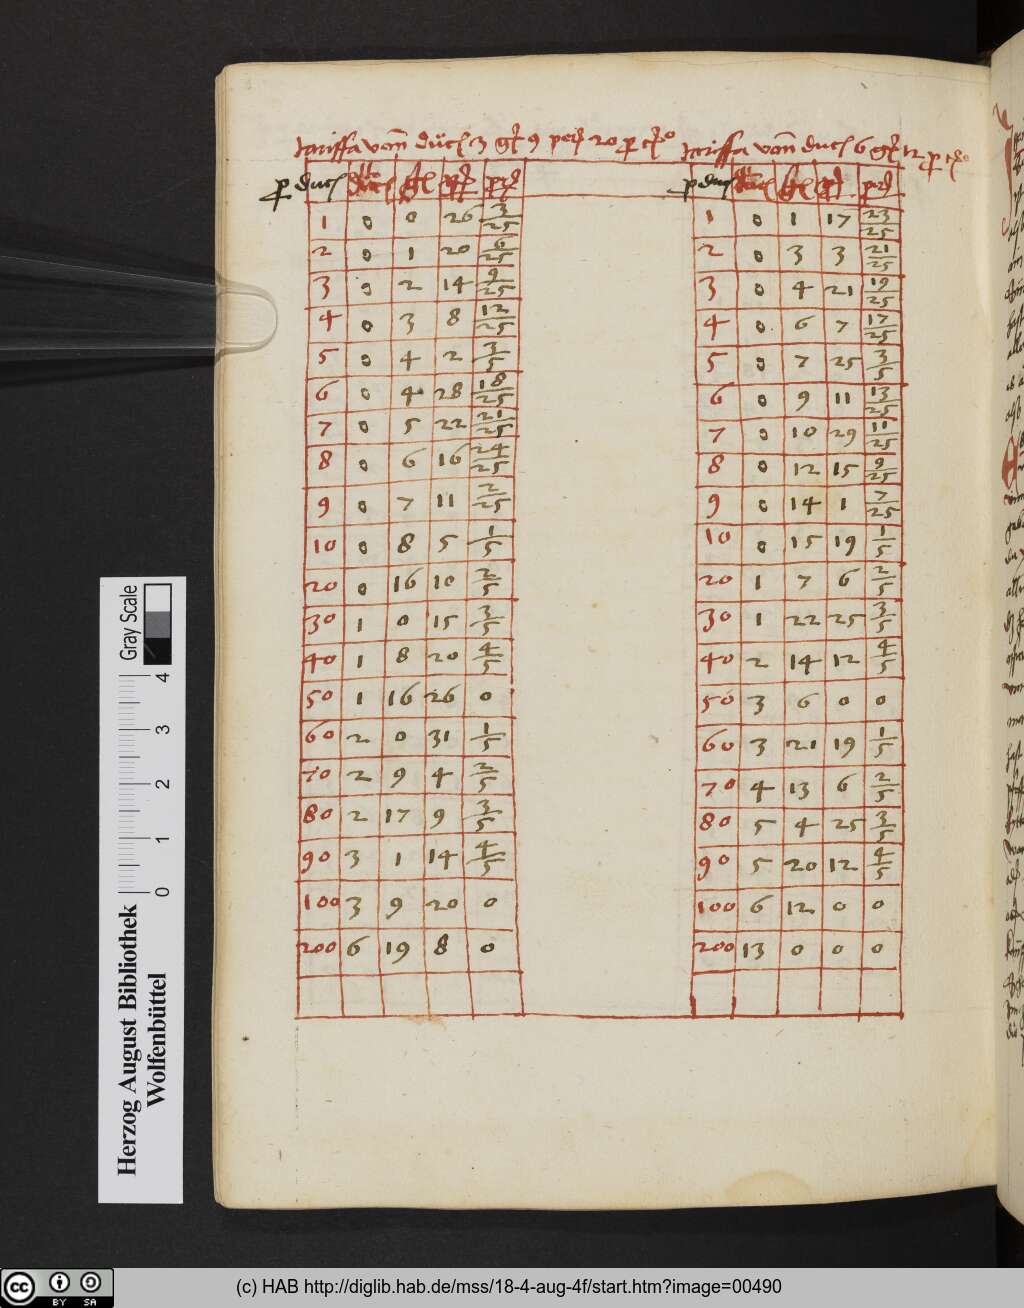 tariffa vom duc 3 gl 9 per 20 p cto
p duc
1 0 0 26 3/25
2 0 1 20 6/25
3 0 2 14 9/25
4 0 3 8 12/25
5 0 4 2 3/5
6 0 4 28 18/25
7 0 5 22 21/25
8 0 6 16 24/25
9 0 7 11 2/25
10 0 8 5 1/5
20 0 16 10 2/5
30 1 0 15 3/5
40 1 8 20 4/5
50 1 16 26 0
60 2 0 31 1/5
70 2 9 4 2/5
80 2 17 9 3/5
90 3 1 14 4/5
100 3 9 20 0
200 6 19 8 0
tariffa vom duc 6 gl 12 p cto
p duc
1 0 1 17 23/25
2 0 3 3 21/25
3 0 4 21 19/25
4 0 6 7 17/25
5 0 7 25 3/5
6 0 9 11 13/25
7 0 10 29 11/25
8 0 12 15 9/25
9 0 14 1 7/25
10 0 15 19 1/5
20 1 7 6 2/5
30 1 22 25 3/5
40 2 14 12 4/5
50 3 6 0 0
60 3 21 19 1/5
70 4 13 6 2/5
80 5 4 25 3/5
90 5 20 12 4/5
100 6 12 0 0
200 13 0 0 0
Gray Scale
0 1 2 3 4
Herzog August Bibliothek
Wolfenbüttel
cc BY SA
(c) HAB http://diglib.hab.de/mss/18-4-aug-4f/start.htm?image=00490